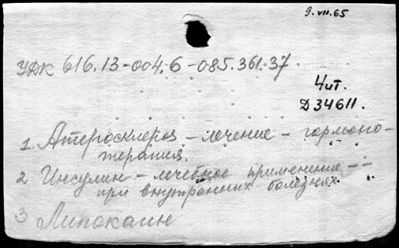 9.VII.65
УДК 616.13-004.6-085.361.37
Чит.
Д34611.
1. Атеросклероз – лечение – гормоно-
терапия.
2. Инсулин – лечебное применение –
при внутренних болезнях
3 Липокаин